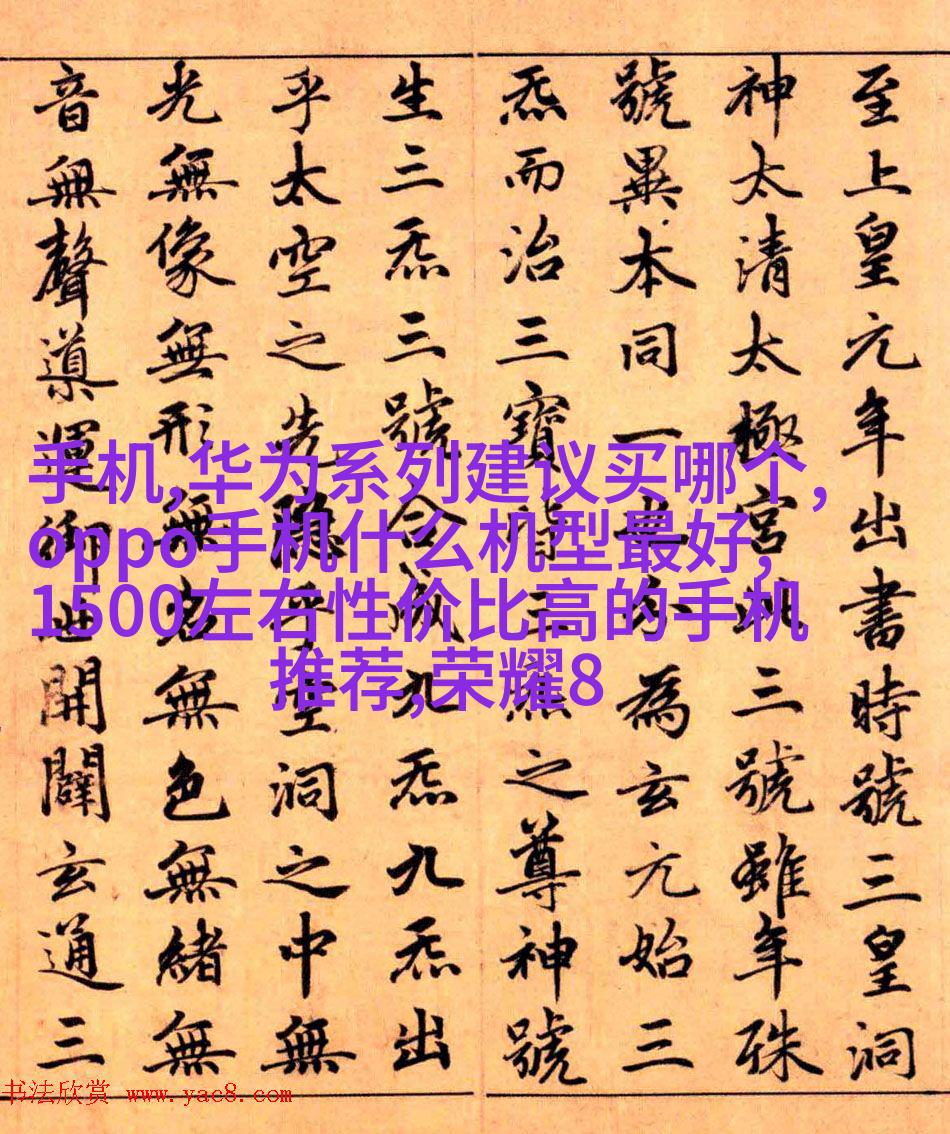 至上皇元年出書時號三皇洞
神太清太極宮此三號雖年殊
號異本同一也分為玄元始三
炁而治三寶皆三炁之尊神號
生三炁三號合成九炁九炁出
乎太空之先隱乎空洞之中無
光無像無形無名無色無緒無
音無聲導運御世開闢玄通三
手机,华为系列建议买哪个,
oppo手机什么机型最好,
1500左右性价比高的手机
推荐,荣耀8
书法欣赏 www.yac8.com